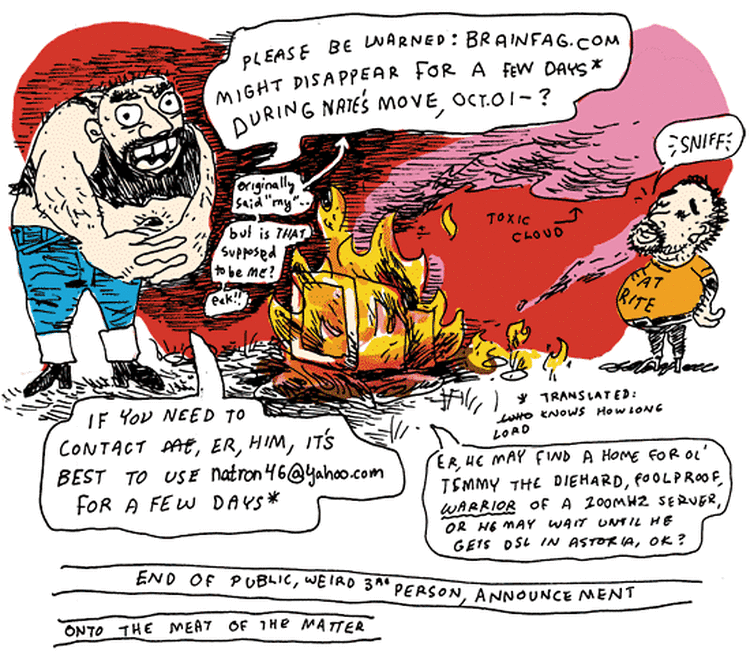 PLEASE BE WARNED: BRAINFAG.COM
MIGHT DISAPPEAR FOR A FEW DAYS*
DURING NATE'S MOVE, OCT.01-?
originally
said "my"...
but is THAT
supposed
to be ME?
eek!!
SNIFF
TOXIC
CLOUD
EAT
RITE
IF YOU NEED TO
CONTACT ME, ER, HIM, IT'S
BEST TO USE natron46@yahoo.com
FOR A FEW DAYS*
* TRANSLATED:
WHO KNOWS HOW LONG
LORD
ER, HE MAY FIND A HOME FOR OL'
TEMMY THE DIEHARD, FOOLPROOF,
WARRIOR OF A 200MHZ SERVER,
OR HE MAY WAIT UNTIL HE
GETS DSL IN ASTORIA, OK?
END OF PUBLIC, WEIRD 3RD PERSON, ANNOUNCEMENT
ONTO THE MEAT OF THE MATTER